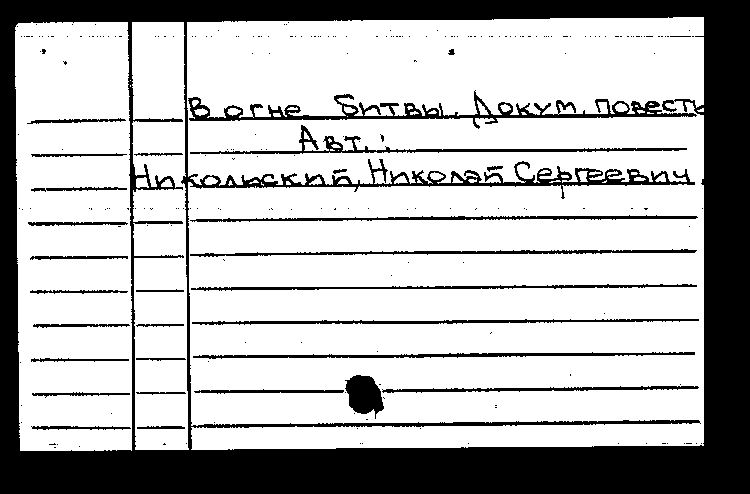 В огне битвы. Докум. повесть
Авт.:
Никольский, Николай Сергеевич.